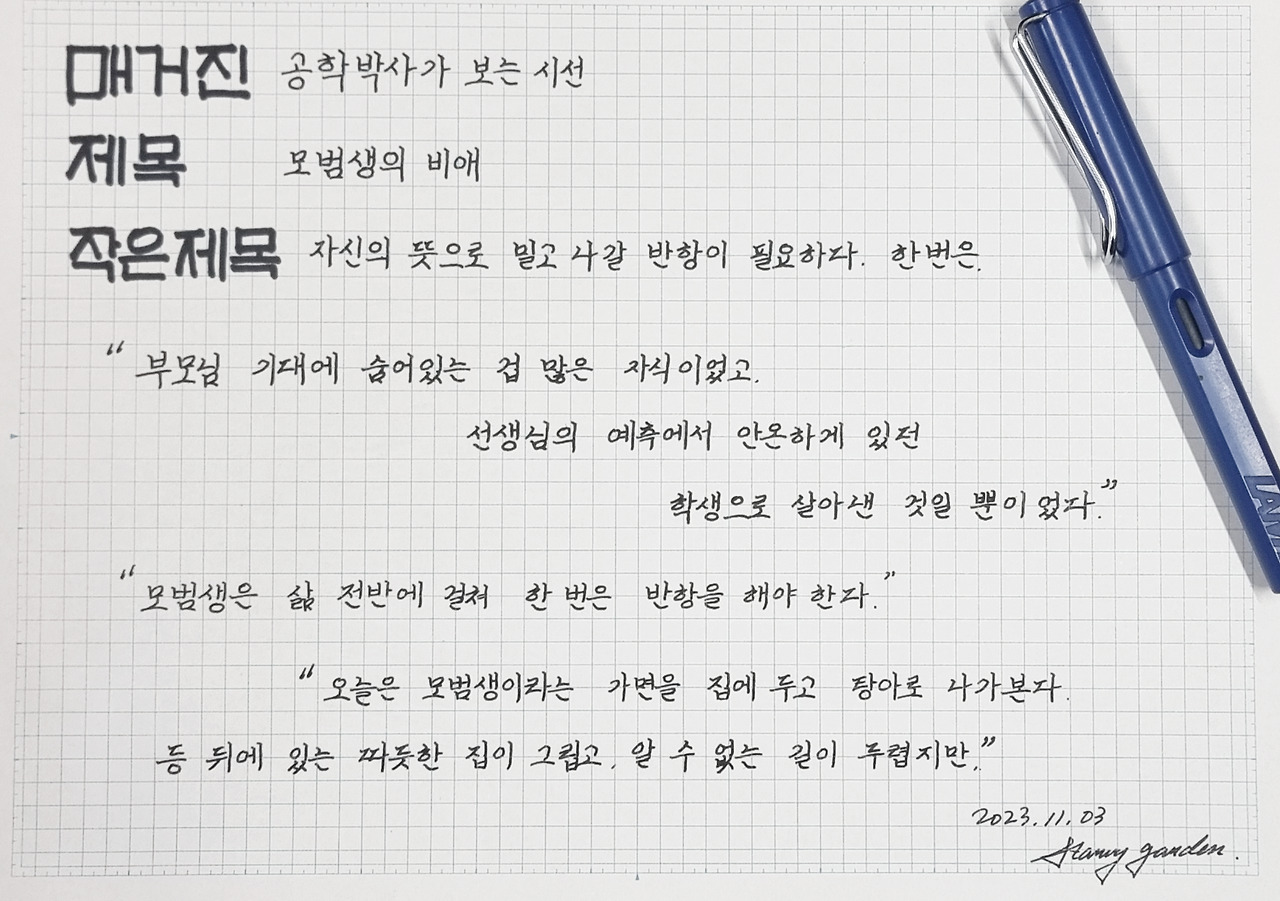 매거진 공학박사가 보는 시선
제목 모범생의 비애
작은제목 자신의 뜻으로 밀고 나갈 반항이 필요하다. 한번은.
“부모님 기대에 숨어있는 겁 많은 자식이었고.
선생님의 예측에서 안온하게 있던
학생으로 살아낸 것일 뿐이었다.”
“모범생은 삶 전반에 걸쳐 한 번은 반항을 해야 한다.”
“오늘은 모범생이라는 가면을 집에 두고 탕아로 나가본다.
등 뒤에 있는 따듯한 집이 그립고, 알 수 없는 길이 두렵지만.”
2023.11.03
Starry garden.
LAMY